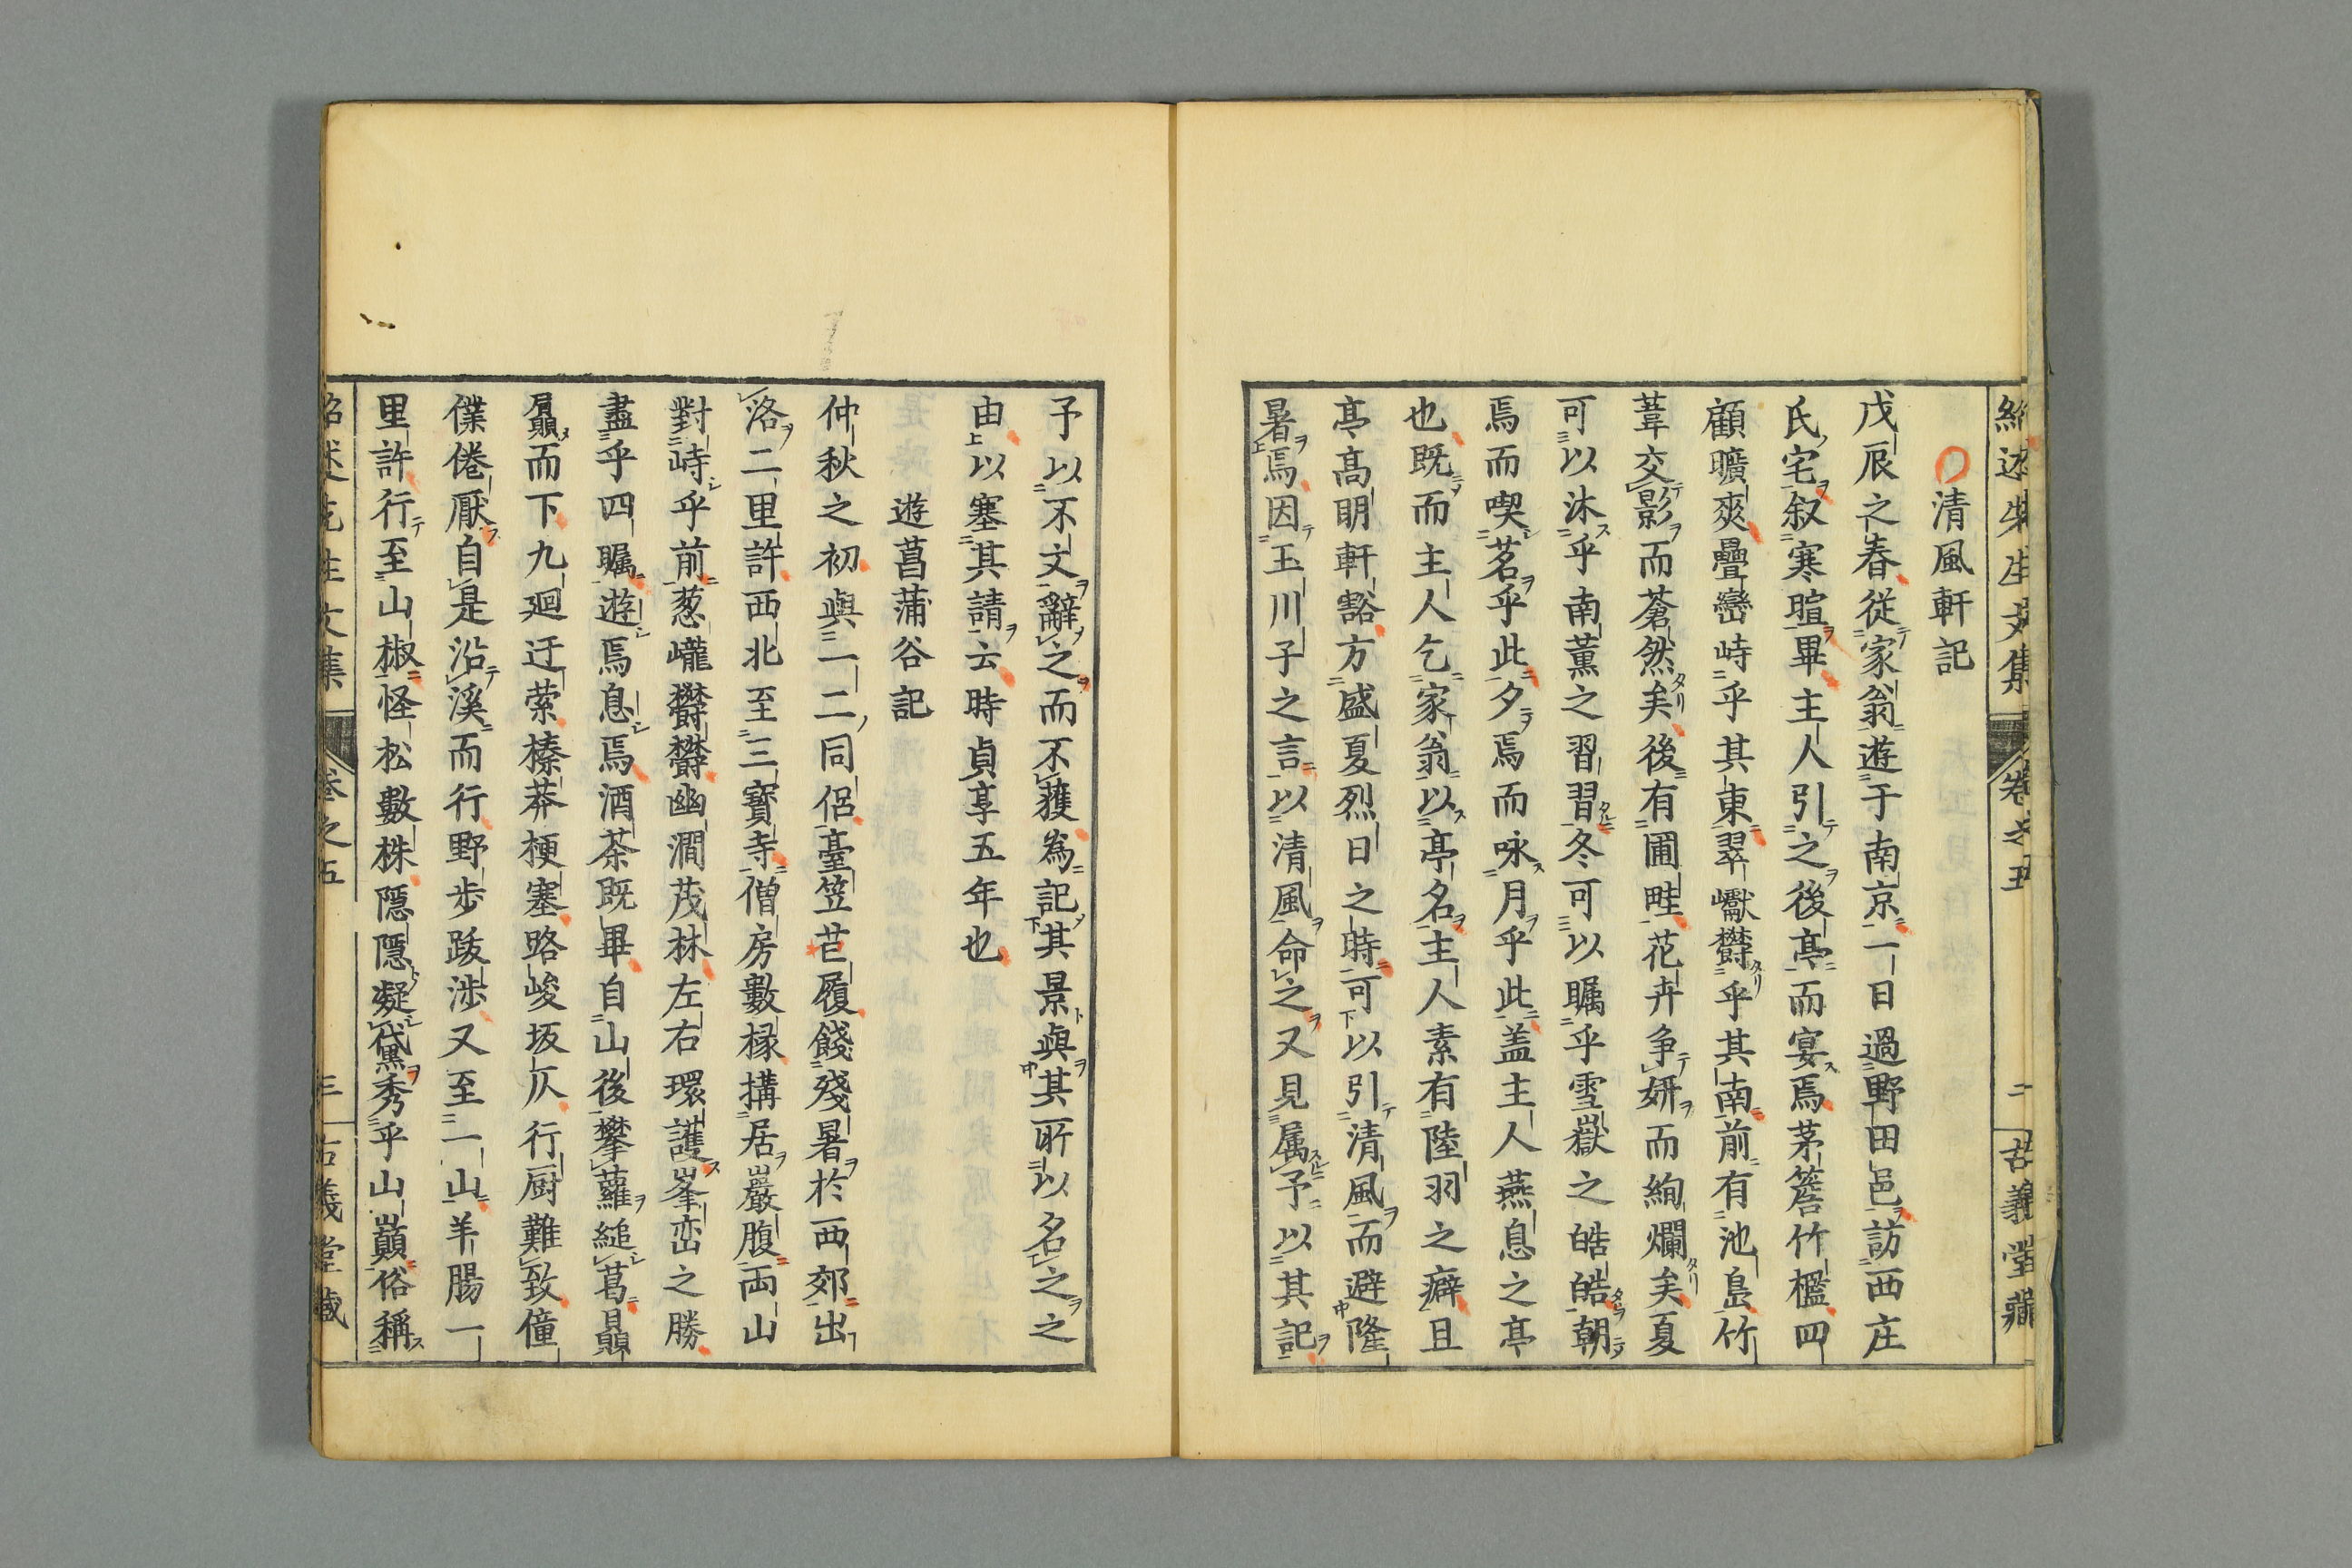 紹述先生文集 卷之五 二 古義堂藏
清風軒記
戊辰之春從家翁遊于南京一日過野田邑訪西庄
氏宅叙寒暄畢主人引之後亭而宴焉茅簷竹檻四
顧曠爽疊巒峙乎其東翠巘欝乎其南前有池島竹
葦交影而蒼然矣後有圃畦花卉争妍而絢爛矣夏
可以沐乎南薰之習習冬可以矚乎雪嶽之皓皓朝
焉而喫茗乎此夕焉而咏月乎此盖主人燕息之亭
也既而主人乞家翁以亭名主人素有陸羽之癖且
亭高明軒豁方盛夏烈日之時可以引清風而避隆
暑焉因玉川子之言以清風命之又見属予以其記
予以不文辭之而不獲為記其景與其所以名之之
由以塞其請云時貞享五年也
遊菖蒲谷記
仲秋之初與一二同侶臺笠芒履餞殘暑於西郊出
洛二里許西北至三寶寺僧房數椽搆居巖腹両山
對峙乎前葱巃欝欝幽澗茂林左右環護峯巒之勝
盡乎四矚遊焉息焉酒茶既畢自山後攀蘿縋葛贔
屭而下九廻迂縈榛莽梗塞路峻坂仄行厨難致僮
僕倦厭自是沿溪而行野歩跋渉又至一山羊腸一
里許行至山椒怪松數株隱隱凝黛秀乎山巔俗稱
紹述先生文集 卷之五 三 古義堂藏